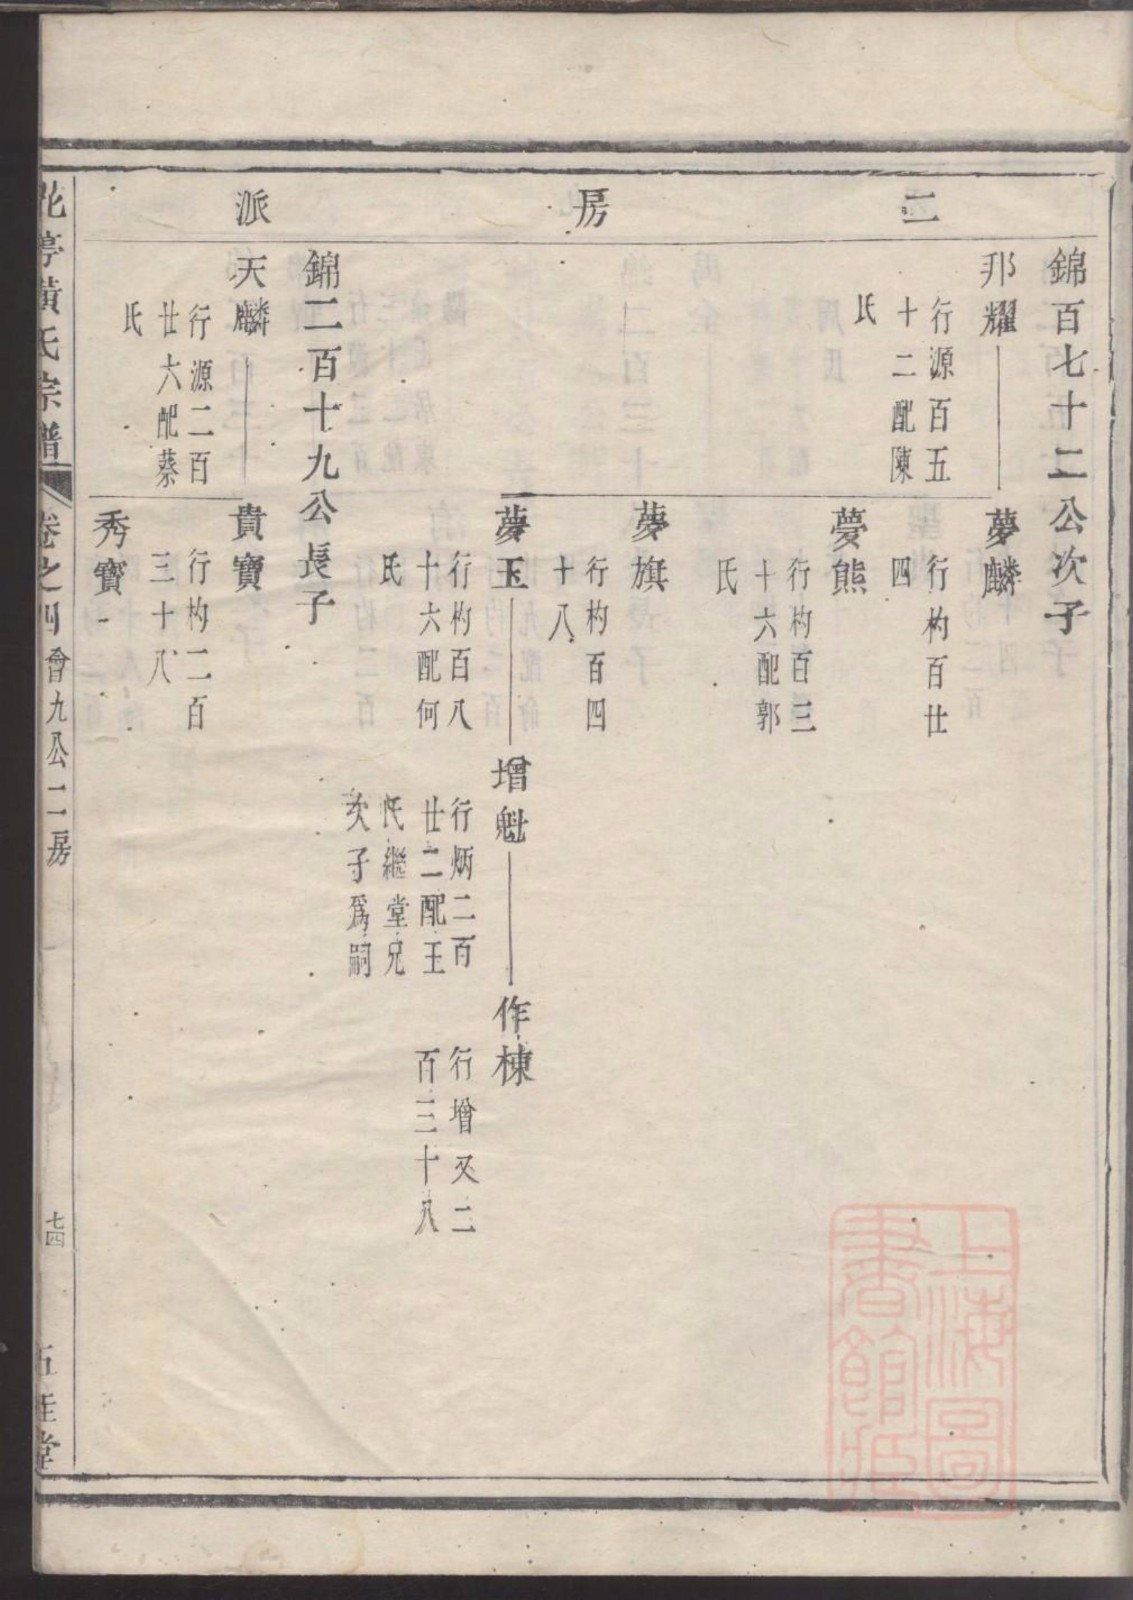 二房派
錦百七十二公次子
邦耀
行源百五
十二配陳
氏
夢麟
行杓百廿
四
夢熊
行杓百三
十六配郭
氏
夢旗
行杓百四
十八
夢玉
行杓百八
十六配何
氏
增魁
行炳二百
廿二配王
氏繼堂兄
次子爲嗣
作棟
行增又二
百三十八
錦二百十九公長子
天麟
行源二百
廿六配蔡
氏
貴寶
行杓二百
三十八
秀寶
花亭黃氏宗譜
卷之四
會九公二房
七四
五桂堂
上海圖
書館藏